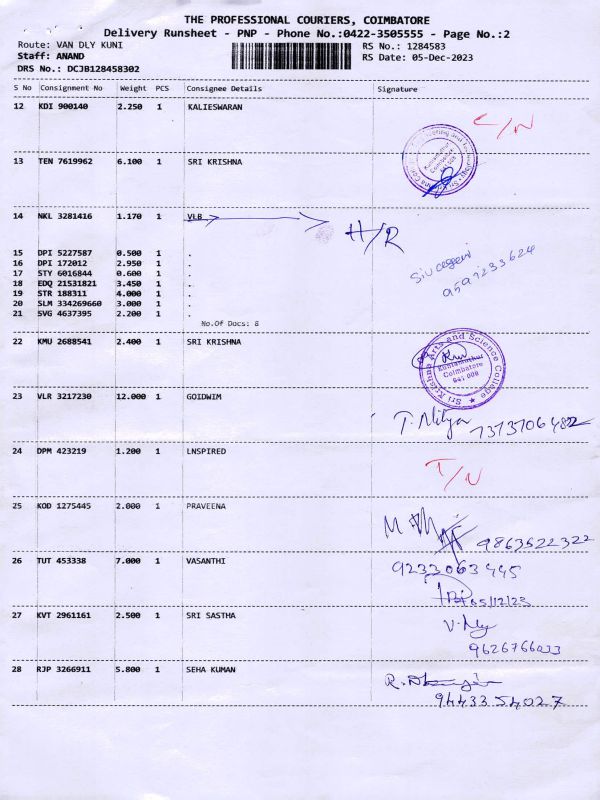 THE PROFESSIONAL COURIERS, COIMBATORE
Delivery Runsheet - PNP - Phone No.:0422-3505555 - Page No.:2
Route: VAN DLY KUNI RS No.: 1284583
Staff: ANAND RS Date: 05-Dec-2023
DRS No.: DCJB128458302
S No Consignment No Weight PCS Consignee Details Signature
12 KDI 900140 2.250 1 KALIESWARAN
13 TEN 7619962 6.100 1 SRI KRISHNA
Kuniamuthur
Coimbatore
641 008
14 NKL 3281416 1.170 1 VLB
H/R
15 DPI 5227587 0.500 1 .
16 DPI 172012 2.950 1 .
17 STY 6016844 0.600 1 .
18 EDQ 21531821 3.450 1 .
19 STR 188311 4.000 1 .
20 SLM 334269660 3.000 1 .
21 SVG 4637395 2.200 1 .
No.Of Docs: 8
22 KMU 2688541 2.400 1 SRI KRISHNA
Sri Krishna Arts and Science College
Kuniamuthur
Coimbatore
641 008
23 VLR 3217230 12.000 1 GOIDWIM
T. Nitya
24 DPM 423219 1.200 1 LNSPIRED
25 KOD 1275445 2.000 1 PRAVEENA
9863522322
26 TUT 453338 7.000 1 VASANTHI
9233063445
05/12/23
27 KVT 2961161 2.500 1 SRI SASTHA
28 RJP 3266911 5.800 1 SEHA KUMAN
9443354027